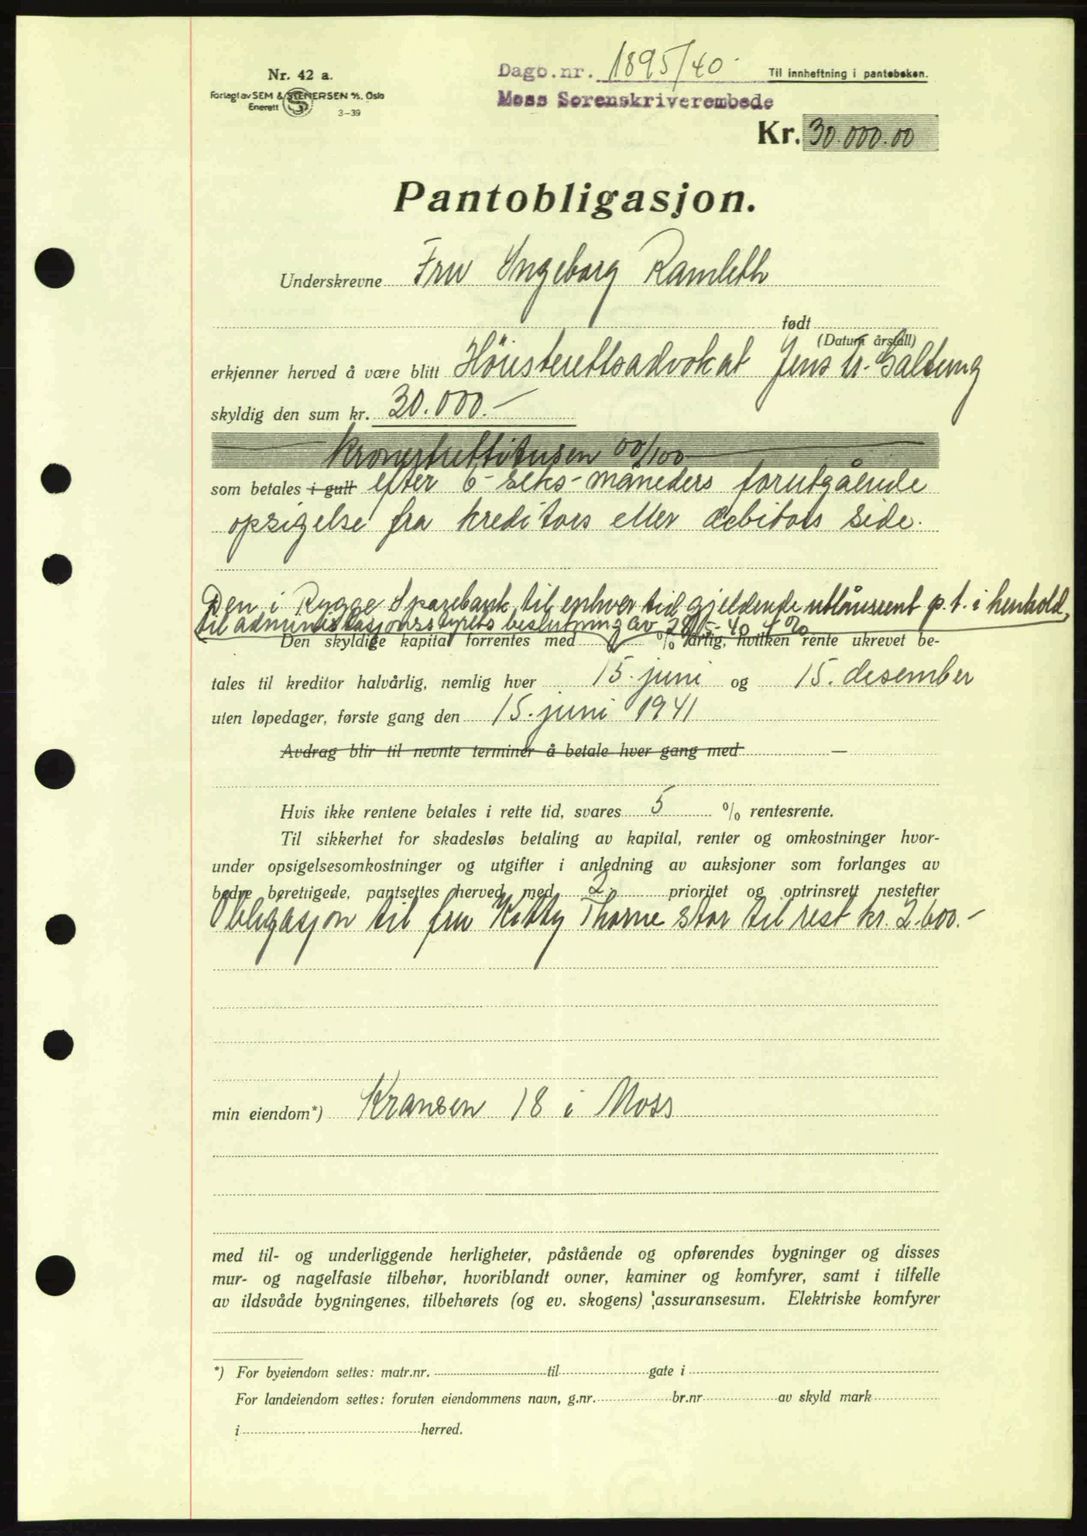 Nr. 42 a.
Forlagt av SEM & STENERSEN A/S. Oslo
Enerett
3-39
Dagb.nr. 1895/40.
Moss Sorenskriverembede
Til innheftning i panteboken.
Kr. 30.000.00
Pantobligasjon.
Underskrevne Fru Ingeborg Ramleth
født
(Datum årstall)
erkjenner herved å være blitt Höiesterettsadvokat Jens Galtung
skyldig den sum kr. 30.000.—
kronertrettitusen 00/100
som betales i gull efter 6-seks-måneders forutgående
opsigelse fra kreditors eller debitors side.
Den i Rygge Sparebank til enhver tid gjeldende utlånsrent p.t. i henhold
til administrasjonsstyrets beslutning av 40 4 %
Den skyldige kapital forrentes med % årlig, hvilken rente ukrevet be-
tales til kreditor halvårlig, nemlig hver 15. juni og 15. desember
uten løpedager, første gang den 15. juni 1941
Avdrag blir til nevnte terminer å betale hver gang med —
Hvis ikke rentene betales i rette tid, svares 5 % rentesrente.
Til sikkerhet for skadesløs betaling av kapital, renter og omkostninger hvor-
under opsigelsesomkostninger og utgifter i anledning av auksjoner som forlanges av
bedre berettigede, pantsettes herved med 2. prioritet og optrinsrett nestefter
Obligasjon til fru Kitty Thorne stor til rest kr. 2.600.—
min eiendom*) Kransen 18 i Moss
med til- og underliggende herligheter, påstående og opførendes bygninger og disses
mur- og nagelfaste tilbehør, hvoriblandt ovner, kaminer og komfyrer, samt i tilfelle
av ildsvåde bygningenes, tilbehørets (og ev. skogens) assuransesum. Elektriske komfyrer
*) For byeiendom settes: matr.nr. til gate i
For landeiendom settes: foruten eiendommens navn, g.nr. br.nr av skyld mark
i herred.